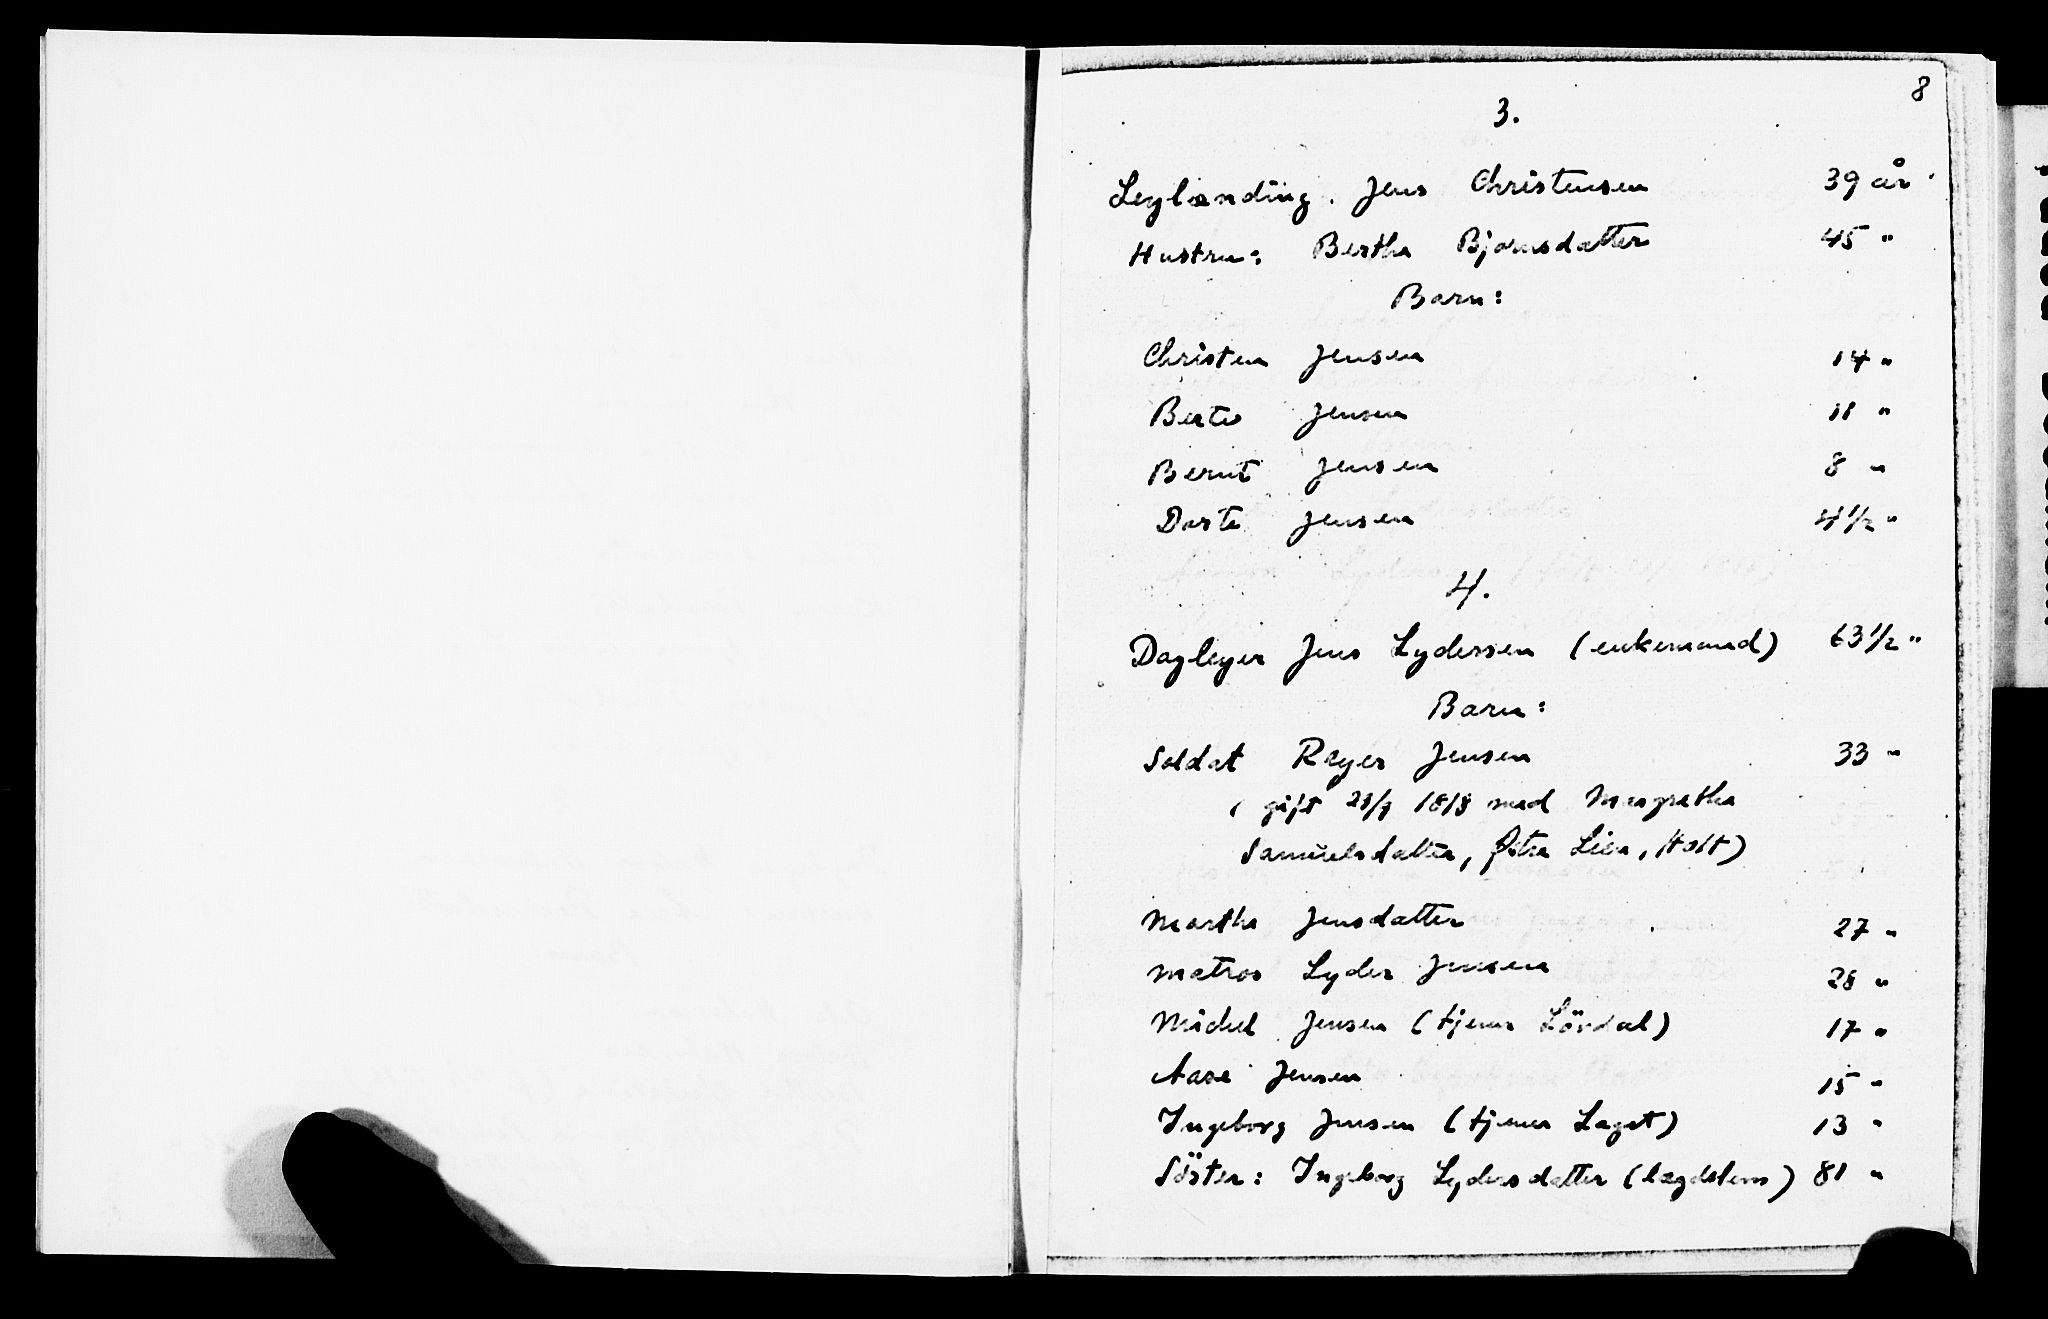 8
3.
Leylænding. Jens Christensen 39 år
Hustru: Bertha Bjørnsdatter 45 "
Barn:
Christen Jensen 14 "
Berte Jensen 11 "
Bernt Jensen 8 "
Dorte Jensen 4 1/2 "
4.
Dagleyer Jens Lydersen (enkemand) 63 1/2 "
Barn:
Soldat Reyer Jensen 33 "
(gift 28/9 1818 med Margretha
Samuelsdatter, Østre Lien, Holt)
Martha Jensdatter 27 "
Matros Lyder Jensen 28 "
Michel Jensen (tjener Lövdal) 17 "
Aase Jensen 15 "
Ingeborg Jensen (tjener Laget) 13 "
Söster: Ingeborg Lydersdatter (lægdslem) 81 "